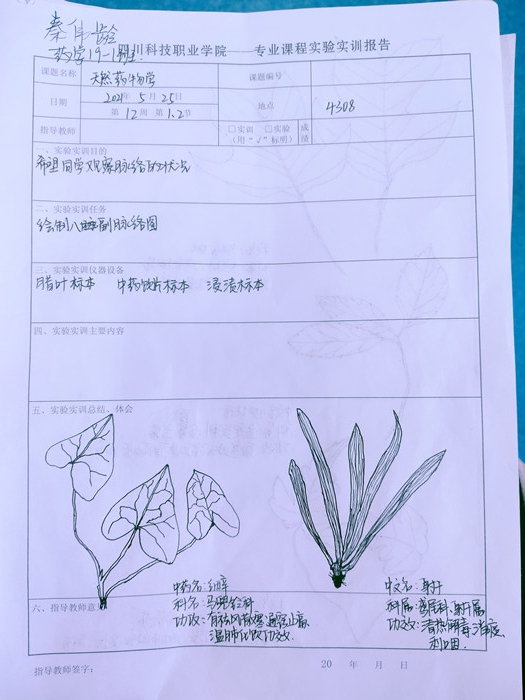 药学19-1班
四川科技职业学院——专业课程实验实训报告
课题名称 天然药物学 课题编号
日期 2021年5月25日 第12周 第1.2节 地点 4308
指导教师 □实训 □实验 (用“√”标明) 成绩
一、实验实训目的
希望同学观察脉络的状况
二、实验实训任务
绘制八幅副脉络图
三、实验实训仪器设备
腊叶标本 中药饮片标本 浸渍标本
四、实验实训主要内容
五、实验实训总结、体会
中药名:细辛
科名:马兜铃科
功效:有祛风散寒通窍止痛
温肺化饮功效.
中文名:射干
科属:鸢尾科、射干属
功效:清热解毒消痰
利咽.
六、指导教师意
指导教师签字:
20 年 月 日